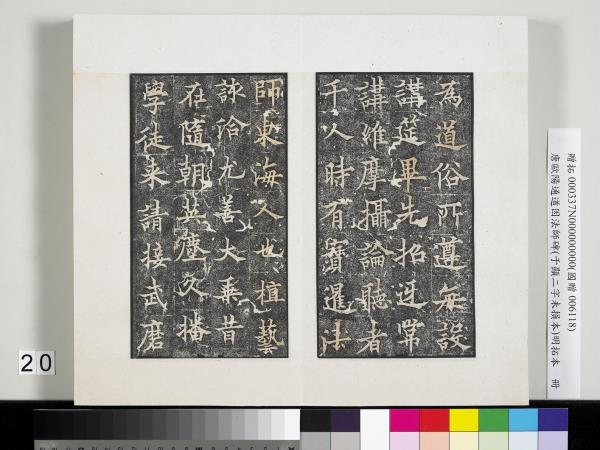 為道俗所遵每設
講筵畢先招迓常
講維摩攝論聽者
千人時有寶暹法
師東海人也植藝
該洽尤善大乘昔
在隋朝英塵久播
學徒來請接武磨
贈拓 000337N000000000(國贈 006118)
唐歐陽通道因法師碑(于顯二字未損本)明拓本 冊
20